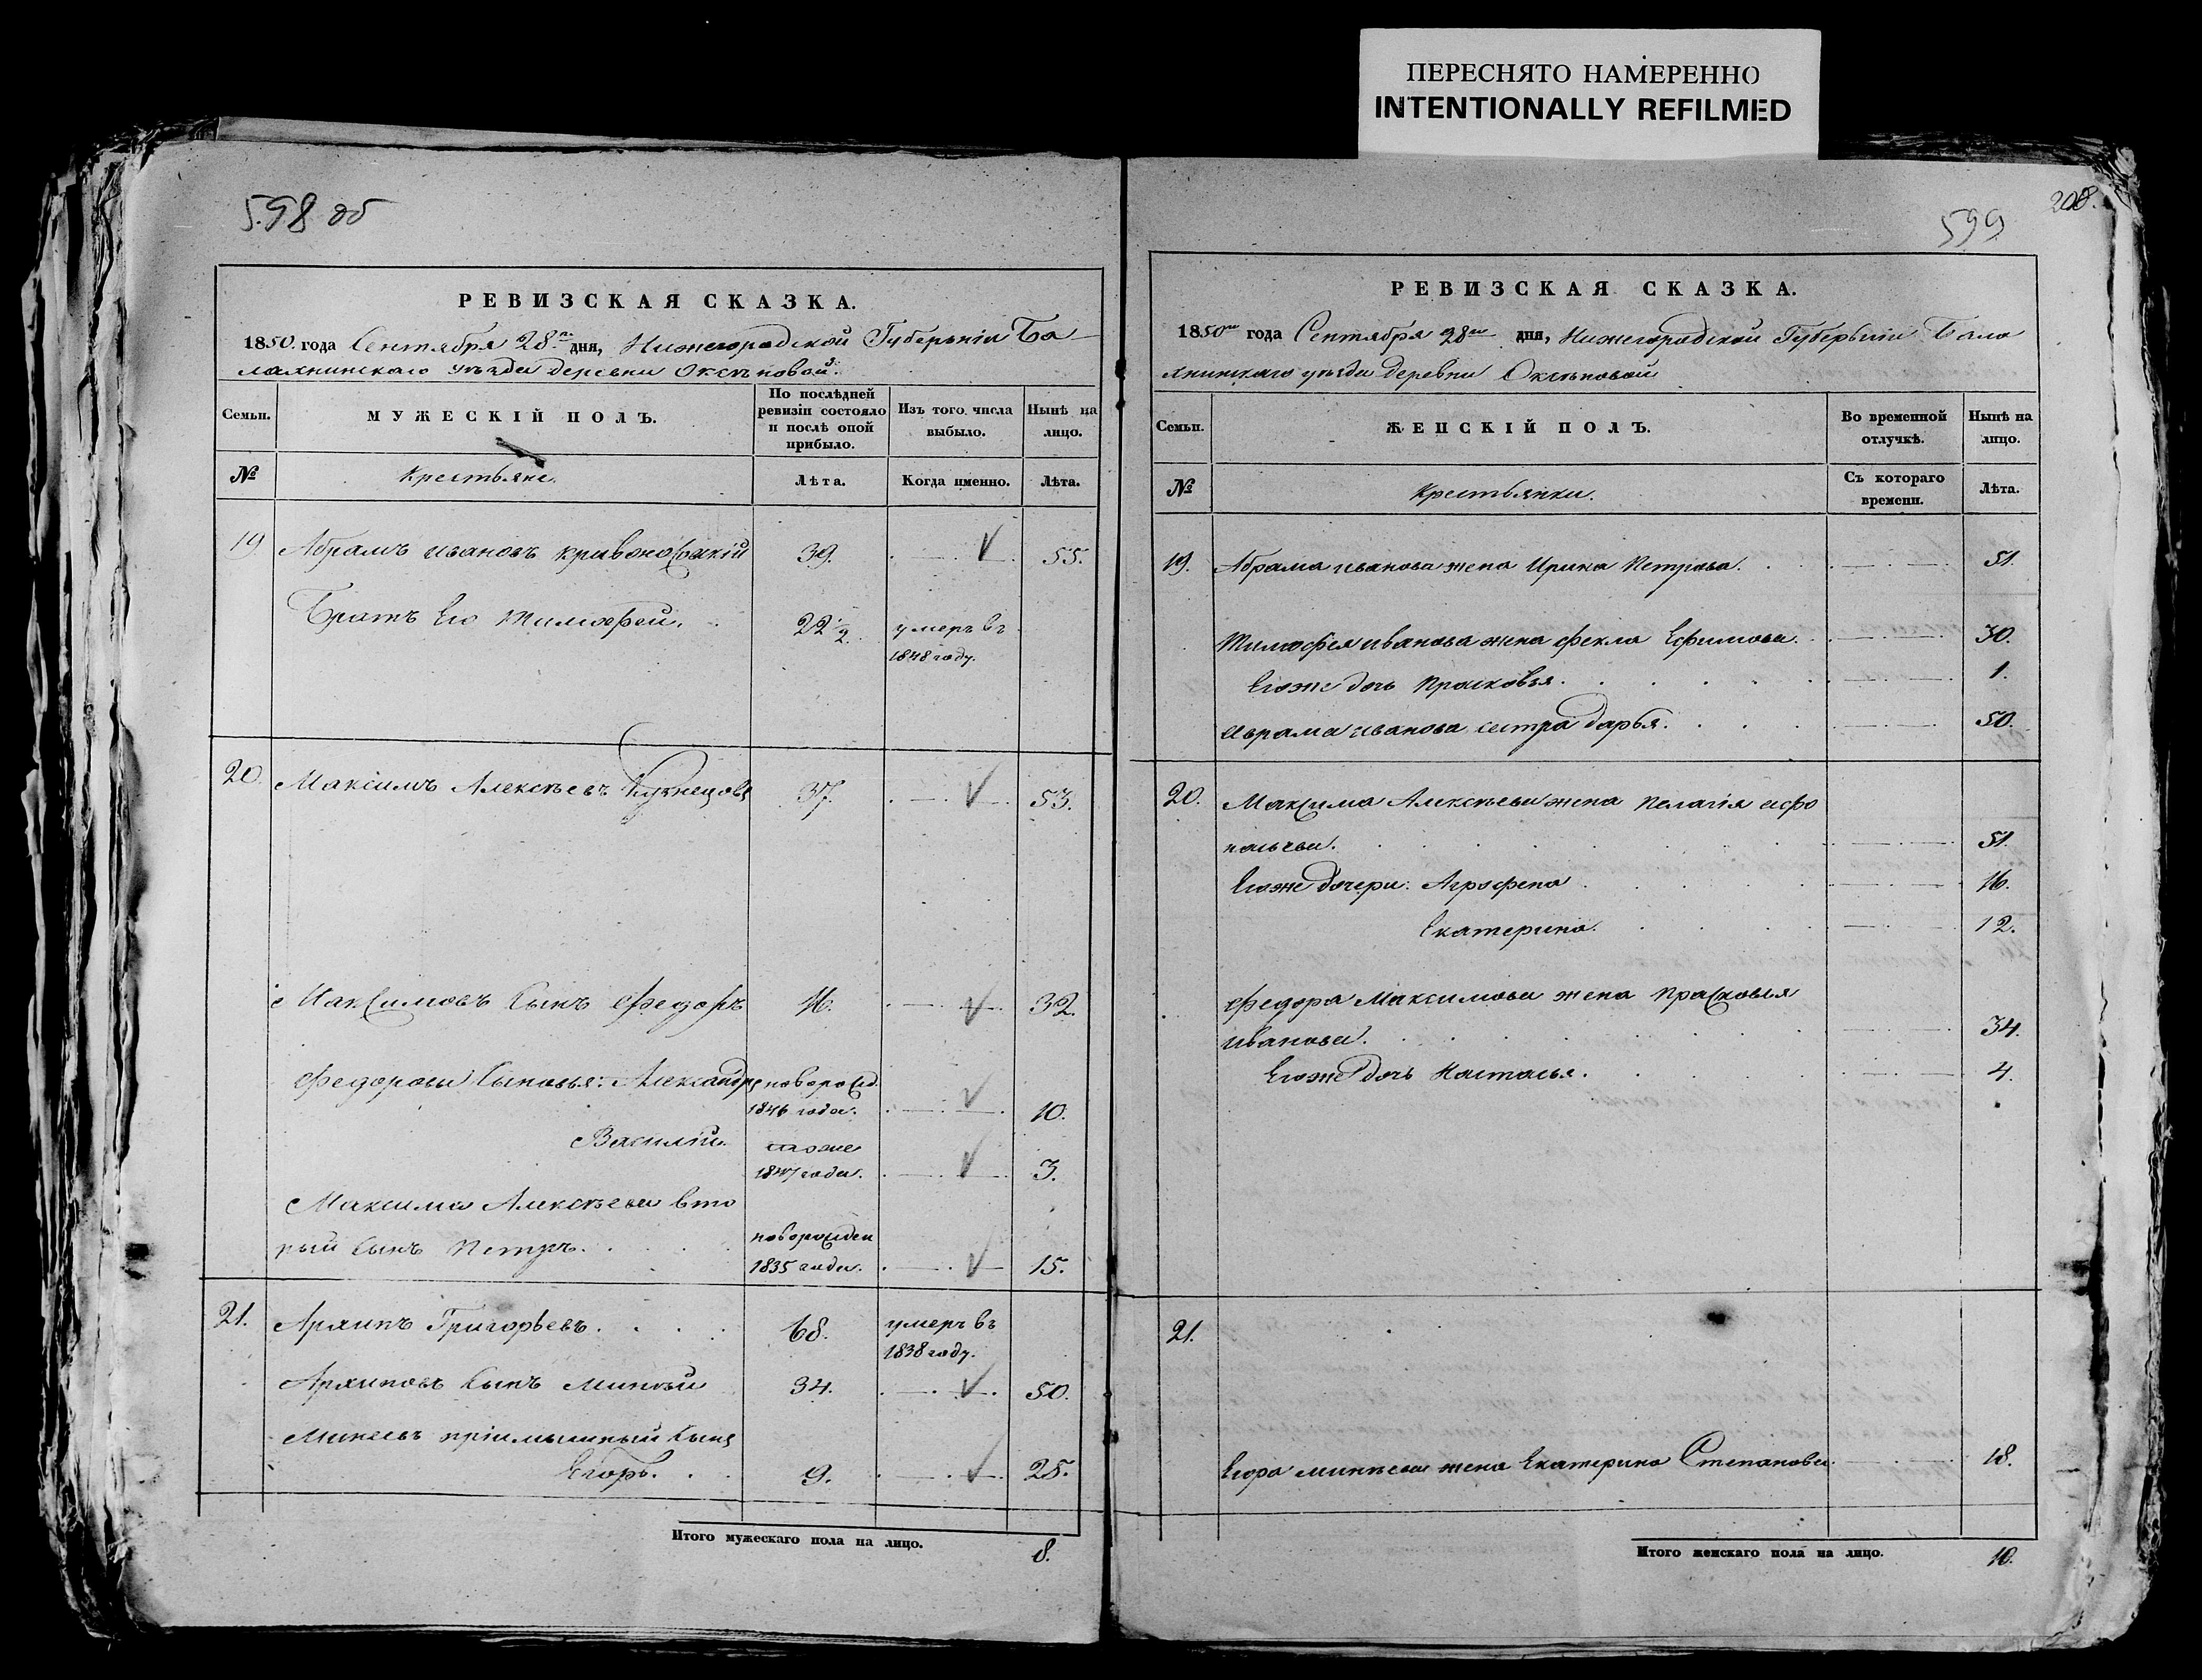 ПЕРЕСНЯТО НАМЕРЕННО
INTENTIONALLY REFILMED
598 об
РЕВИЗСКАЯ СКАЗКА.
1850. года Сентября 28.го дня, Нижегородской Губерніи Ба
лахнинскаго уѣзда деревни Оксѣновой.
Семьи.
МУЖЕСКІЙ ПОЛЪ.
По послѣдней
ревизіи состояло
и послѣ оной
прибыло.
Изъ того числа
выбыло.
Нынѣ на
лицо.
№
Крестьяне.
Лѣта.
Когда именно.
Лѣта.
19 Абрамъ Ивановъ 39. 55.
Братъ Его Тимофей. 22 1/2. умеръ въ
1848 году.
20. Максимъ Алексѣевъ Кузнецовъ 37. 53.
Максимовъ Сынъ Федоръ 16. 32.
Федоровы Сыновья: Александръ
новорожд.
1846 года. 10.
Василій. тоже
1847 года. 3.
Максима Алексѣева вто
рый Сынъ Петръ. новорожден
1835 года. 15.
21. Архипъ Григорьевъ. 68. умеръ въ
1838 году.
Архиповъ Сынъ Минѣй 34. 50.
Минеевъ пріимышный Сынъ
Егоръ. 9. 25.
Итого мужескаго пола на лицо. 8.
208.
599
РЕВИЗСКАЯ СКАЗКА.
1850го года Сентября 28го дня, Нижегородской Губерніи Бала
хнинскаго уѣзда деревни Оксѣновой
Семьи.
ЖЕНСКІЙ ПОЛЪ.
Во временной
отлучкѣ.
Нынѣ на
лицо.
№
Крестьянки.
Съ котораго
времени.
Лѣта.
19. Абрама Иванова жена Ирина Петрова. 51.
Тимофея Иванова жена Фекла Ефимова. 30.
Егоже дочь Прасковья. 1.
Аврама Иванова сестра Дарья. 50.
20. Максима Алексѣева жена Пелагія Афо
насьева. 51.
Егоже дочери: Агрофена 16.
Екатерина. 12.
Федора Максимова жена Прасковья
Иванова. 34.
Егоже дочь Настасья. 4.
21.
Егора Минѣева жена Екатерина Степанова. 18.
Итого женскаго пола на лицо. 10.